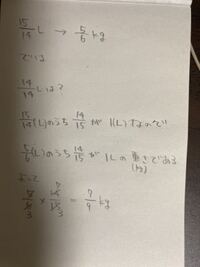 15/14 L → 5/6 kg
では
14/14 Lは?
15/14(L)のうち 14/15 が 1(L) なので
5/6(L)のうち 14/15 が 1Lの重さである
(kg)
よって
5/6 × 14/15 = 7/9 kg
3 7 3